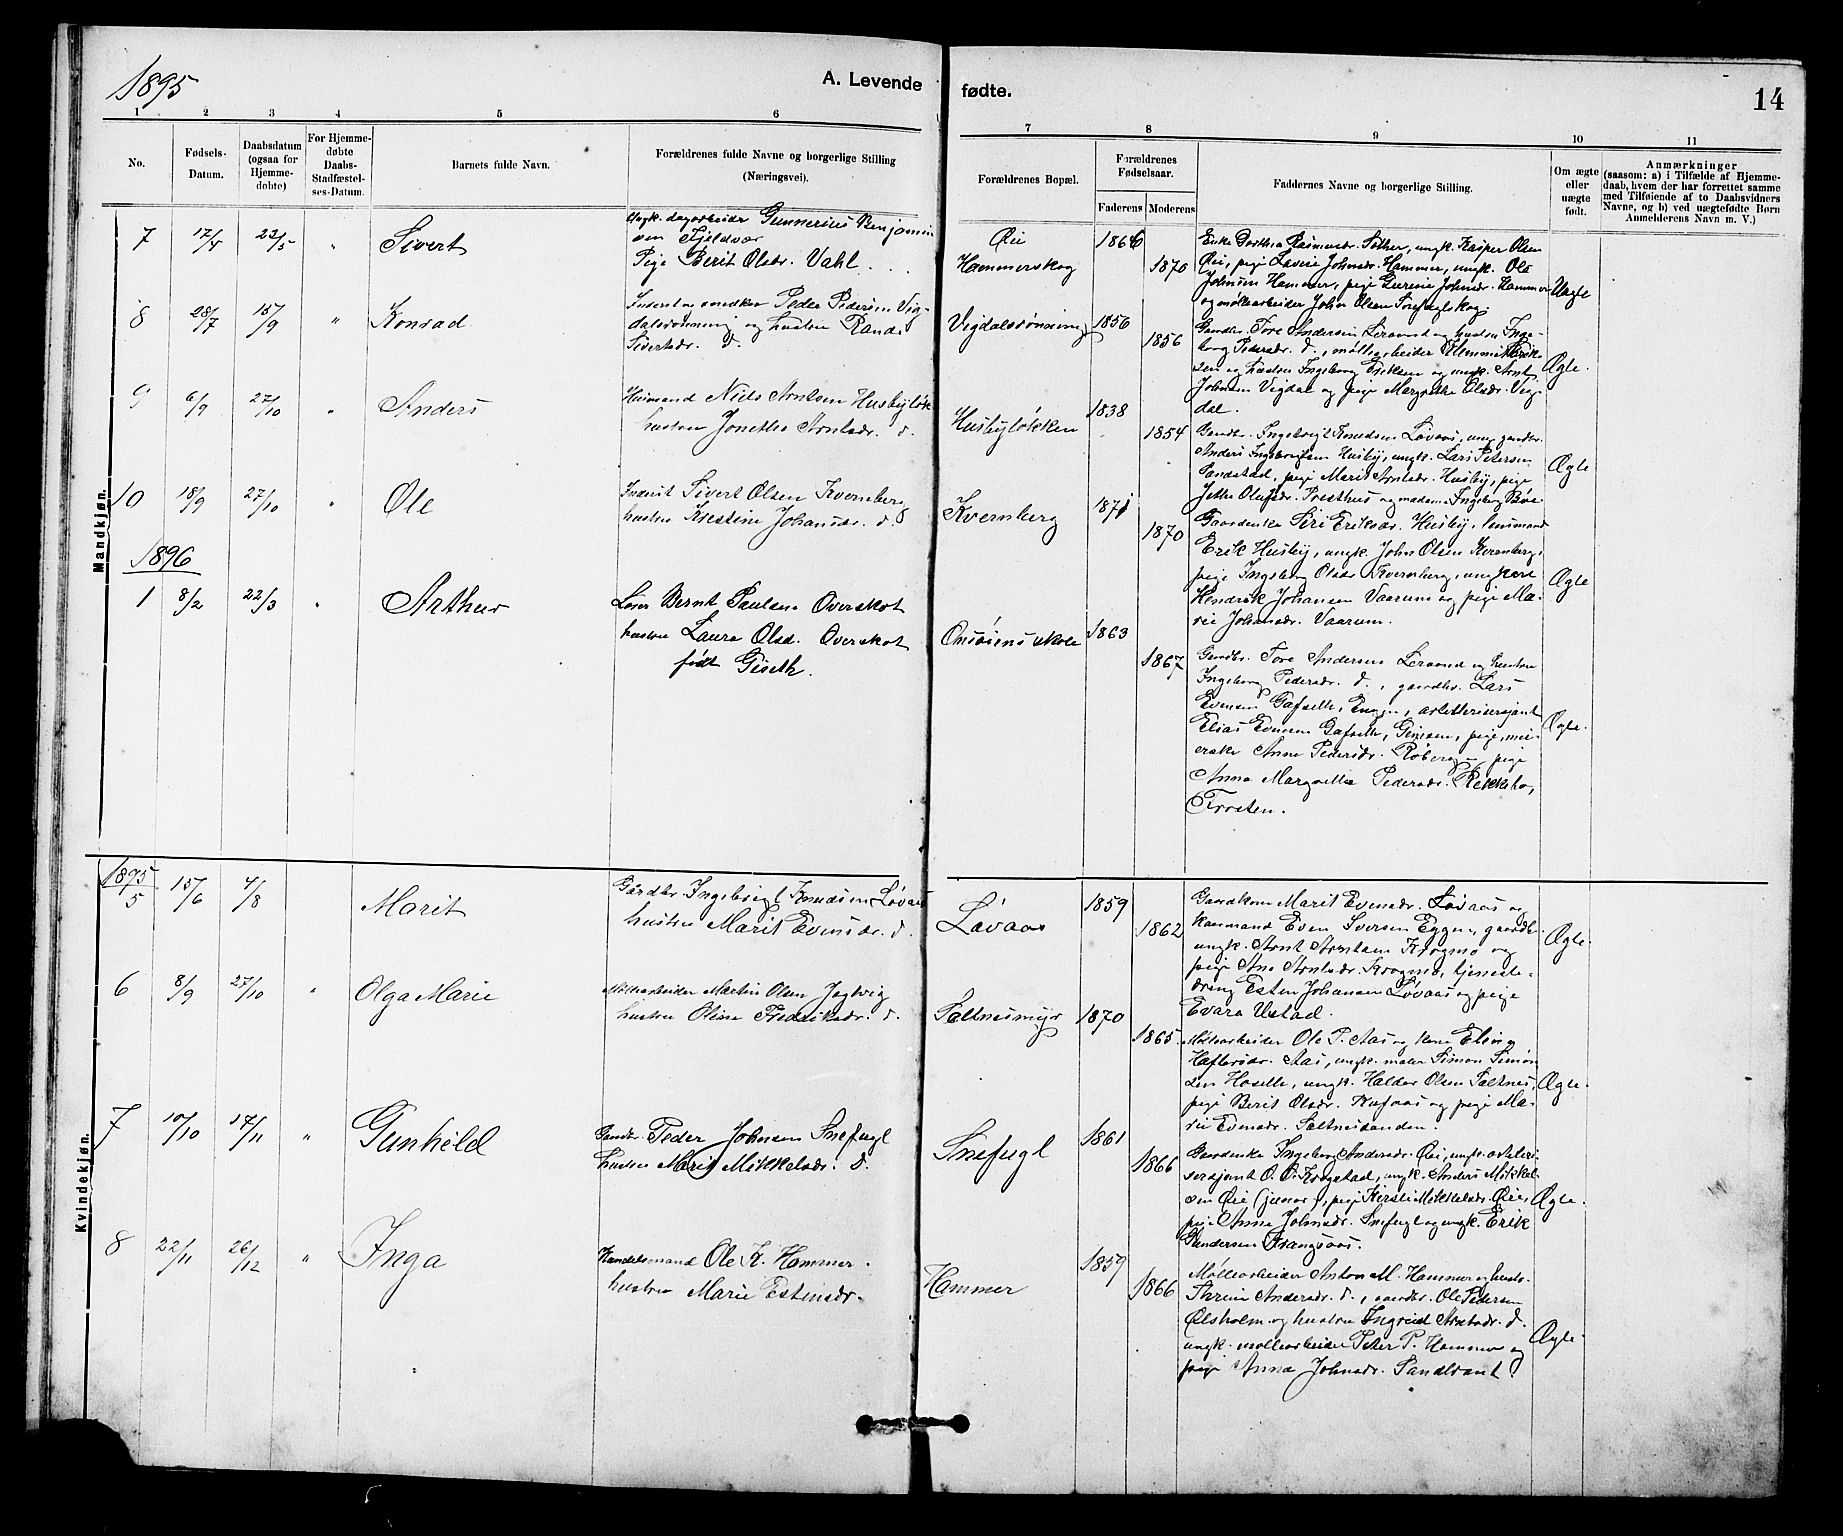 1895
A. Levende
fødte.
14
1 2 3 4 5 6 7 8 9 10 11
No.
Fødsels-
Datum.
Daabsdatum
(ogsaa for
Hjemme-
døbte)
For Hjemme-
døbte
Daabs-
Stadfæstel-
ses-Datum.
Barnets fulde Navn.
Forældrenes fulde Navne og borgerlige Stilling
(Næringsvei).
Forældrenes Bopæl.
Forældrenes
Fødselsaar.
Faderens. Moderens
Faddernes Navne og borgerlige Stilling.
Om ægte
eller
uægte
født.
Anmærkninger
(saasom: a) i Tilfælde af Hjemme-
daab, hvem der har forrettet samme
med Tilføiende af to Daabsvidners
Navne, og b) ved uægtefødte Børn
Anmelderens Navn m. V.)
Mandkjøn.
7 17/4 23/5 " Sivert
Ungk. dagarbeider Gunnerius Benjamin
sen Fjeldvær
Pige Berit Olsdr. Vahl
Øie
Hammerskog
1866
1870
Enke Dorthea Rasmusdr. Sather, ungk. Kasper Olsen
Øie, pige Laverie Johnsdr. Hammer, ungk. Ole
Johnsen Hammer, pige Gurine Johnsdr. Hammer
og møllearbeider John Olsen Snefuglskog
Uægte
8 28/7 15/9 " Konrad
Inderst og smed Peder Pedersen Vig-
dalsrønning og hustru Randi
Sivertsdr. d.
Vigdalsrønning
1856
1856
Gaardbr. Tore Andersen Leraand og hustru Inge-
borg Pedersdr. d., møllearbeider Henrik Erik-
sen og hustru Ingeborg Eriksen og ungk. Arnt
Johnsen Vigdal og pige Margrethe Olsdr. Vig-
dal.
Ægte.
9 6/9 27/10 " Anders
Husmand Niels Arntsen Husbyløk
hustru Jonetta Arntsdr. d.
Husbyløkken
1838
1854
Gaardbr. Ingebrigt Knudsen Løvaas, ung gaardbr.
Anders Ingebrigtsen Husby, ungk. Lars Petersen
Sandstad, pige Marit Arntsdr. Husby, pige
Jette Olufsdr. Presthus og madam Ingeborg Bøe
Ægte
10 18/9 27/10 " Ole
Inderst Sivert Olsen Kvernberg
hustru Kirstine Johansdr. d.
Kvernberg
1871
1870
Gaardenke Siri Eriksdr. Husby, lensmand
Erik Husby, ungk. John Olsen Kvernberg,
pige Ingeborg Olsdr. Kvernberg, ungkarl
Hendrik Johansen Vaarum og pige Ma-
rie Johansdr. Vaarum.
Ægte
1896
1 8/2 22/3 " Arthur
Lærer Bernt Paulsen Overskot
hustru Laura Olsd. Overskot
født Giseth.
Onsøiens skole
1863
1867
Gaardbr. Tore Andersen Leraand og hustru
Ingeborg Pedersdr. d., gaardbr. Lars
Evensen Gafseth, Eggen, artellerisersjant
Elias Evensen Gafseth, Gimsen, pige, mei-
erske Anne Pedersdr. Røberg, pige
Anna Margrethe Pedersdr. Rekkebo,
Frosten.
Ægte.
Kvindekjøn.
1895
5 15/6 4/8 Marit
Gårdbr. Ingebrigt Knudsen Løvaas
hustru Marit Evensdr. d.
Løvaas
1859
1862
Gaardkone Marit Evensdr. Løvaas og
kaarmand Even Iversen Eggen, gaardbr.
ungk. Arnt Arntsen Krogmo og
pige Ane Arntsdr. Krogmo, tjeneste-
dreng Esten Johansen Løvaas og pige
Evara Ustad.
Ægte.
6 8/9 27/10 " Olga Marie
Møllearbeider Martin Olsen Jagtvig
hustru Oline Fredriksdr. d.
Saltnesmyr
1870
1865.
Møllearbeider Ole P. Aas og kone Elin
Haftorsdr. Aas, ungk. maler Simon Simon
sen Hoseth, ungk. Haldor Olsen Saltnes,
pige Berit Olsdr. Kufaas og pige Ma-
rie Evensdr. Saltnessanden.
Ægte.
7 10/10 17/11 " Gunhild
Gaardbr. Peder Johnsen Snefugl
hustru Marit Mikkelsdr. d.
Snefugl
1861
1866
Gaardenke Ingeborg Andersdr. Øie, ungk. arteleri
sersjant O. O. Krogstad, ungk. Anders Mikkel
sen Øie (junior), pige Kirsti Mikkelsdr. Øie,
pige Anna Johnsdr. Snefugl og ungk. Erik
Gundersen Krangsaas.
Ægte.
8 22/11 26/12 " Inga
Handelsmand Ole K. Hammer.
hustru Marie Estensdr.
Hammer
1859
1866
Møllearbeider Anton M. Hammer og hustr.
Thrine Andersdr. d., gaardbr. Ole Pedersen
Øisholm og hustru Ingrid Arntsdr. d.
ungk. møllearbeider Peter P. Hammer og
pige Anna Johnsdr. Sandbrant.
Ægte.